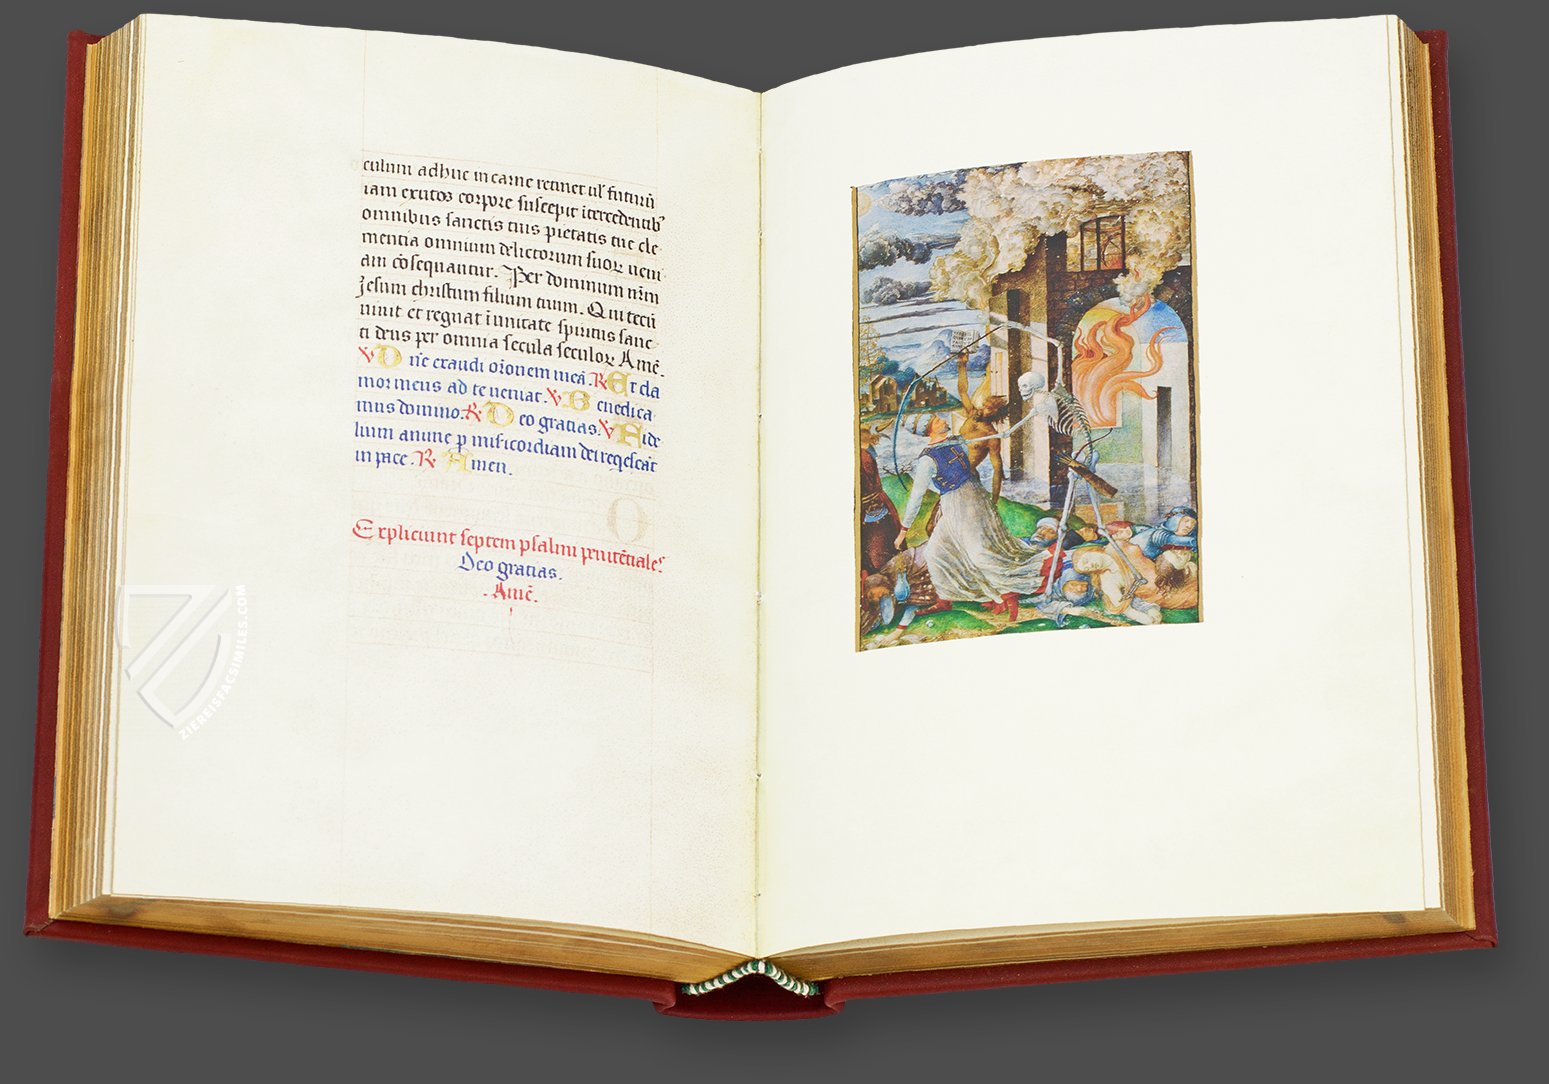 culum adhuc in carne retinet ul' futurū
iam exutos corpore suscepit itercedentib'
omnibus sanctis tuis pietatis tue cle
mentia omnium delictorum suoꝝ ueni
am cōsequantur. Per dominum nrm̄
Jesum christum filium tuum. Qui tecū
uiuit et regnat ī unitate spiritus sanc
ti deus per omnia secula seculoꝝ Amē.
℣ Dn̄e exaudi orōnem meā. ℟ Et cla
mor meus ad te ueniat. ℣ Benedica
mus domino. ℟ Deo gratias. ℣ Fide
lium anime p misicordiam dei reqescāt
in pace. ℟ Amen.
Expliciunt septem psalmi penitētiales
Deo gratias.
.Amē.
ZIEREISFACSIMILES.COM